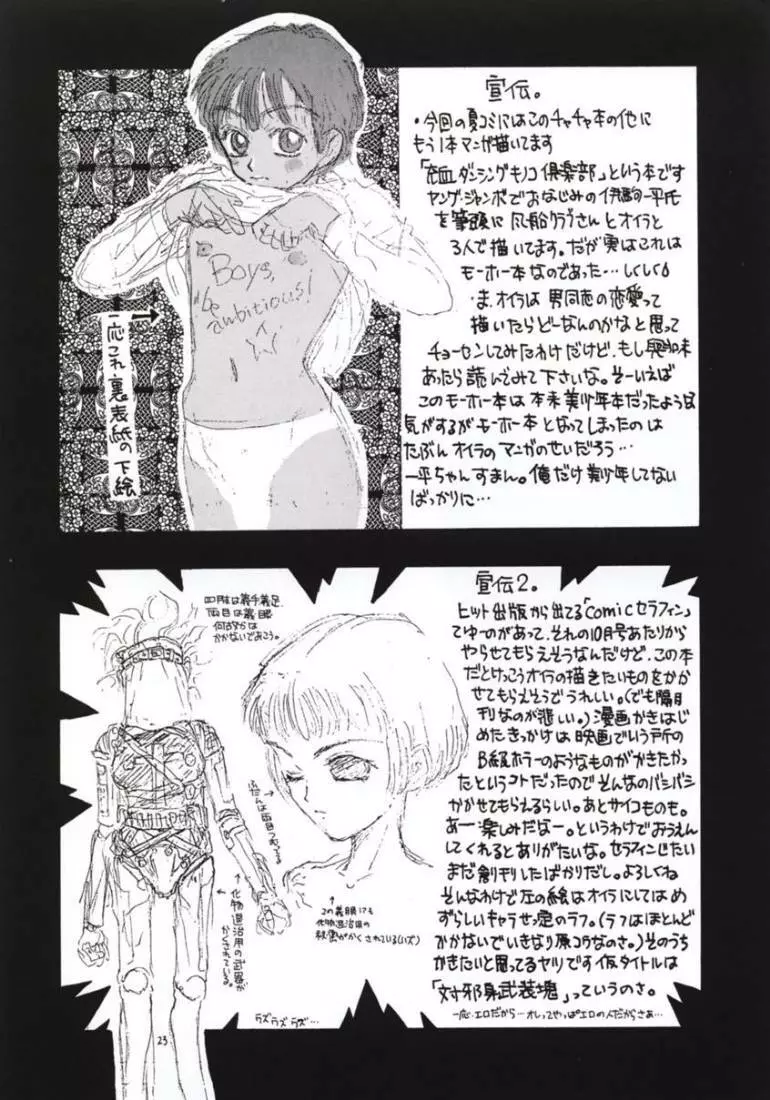 宣伝。
・今回の夏コミにはこのチャチャ本の他に
もう1本マンガ描いてます
ダンシングキノコ倶楽部」という本です
ヤング・ジャンボでおなじみの伊駒一平氏
を筆頭に風船クラブさんとオイラと
3人で描いてます。だが実はこれは
モーホー本なのであった…しくしく
・ま、オイラは男同志の恋愛って
描いたらどーなんのかなと思って
チョーセンしてみたわけだけど、もし興味
あったら読んでみて下さいな。そーいえば
このモーホー本は本来美少年本だったような
気がするがモーホー本となってしまったのは
たぶんオイラのマンガのせいだろう…
一平ちゃんすまん。俺だけ美少年してない
ばっかりに…
Boys,
be
ambitious!
一応これ裏表紙の下絵
宣伝2。
ヒット出版から出てる「comicセラフィン」
てゆーのがあって、それの10月号あたりから
やらせてもらえそうなんだけど、この本
だとけっこうオイラの描きたいものをかか
せてもらえそうでうれしい。(でも隔月
刊なのが悲しい。)漫画かきはじ
めたきっかけは映画でいう所の
B級ホラーのようなものががきたかっ
たというコトだったのでそんなのバシバシ
かかせてもらえるらしい。あとサイコものも。
あー楽しみだなー。というわけでおうえん
してくれるとありがたいな。セラフィンじたい
まだ創刊したばかりだし。よろしくね
そんなわけで左の絵はオイラにしてはめ
ずらしいキャラせってい のラフ。(ラフはほとんど
かかないでいきなり原コウなのさ。)そのうち
かきたいと思ってるヤツです仮タイトルは
「対邪身武装塊」っていうのさ。
一応、エロだから…オレってやっぱエロの人だからさぁ…
四肢は義手義足、
両目は義眼
何故かは
かかないでおこう。
ふだんは両目つむってる
↑
この義眼にも
化物退治用の
秘密がかくされている(ハズ)
↑
化物退治用の武器が
かくされている。
ラズラズラズ…
23